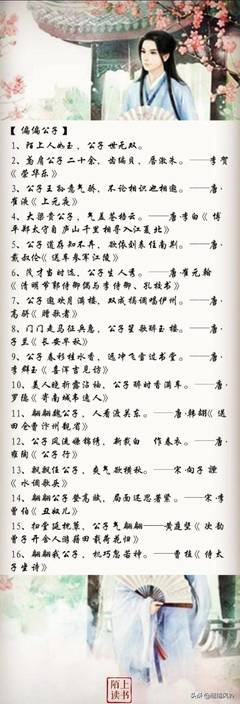 【 偏偏公子 】
1、陌上人如玉，公子世无双。
2、鸢肩公子二十余，齿编贝，唇激朱。——李贺
《荣华乐》
3、公子王孙意气骄，不论相识也相邀。——唐·
崔液《上元夜》
4、大梁贵公子，气盖苍梧云。——唐·李白《博
平郑太守自庐山千里相寻入江夏北》
5、公子道存知不弃，欲依刘表住南荆。——唐·
戴叔伦《送车参军江陵》
6、茂才当时选，公子生人秀。——崔元翰
《清明节郭侍御偶与李侍御、孔校书》
7、公子邀欢月满楼，双成揭调唱伊州。——唐·
高骈《赠歌者》
8、门门走马征兵急，公子笙歌醉玉楼。——李
子里《长安早秋》
9、公子春衫桂水香，远冲飞雪过书堂。——唐·
李群玉《喜浑吉见访》
10、美人晓折露沾袖，公子醉时香满车。——唐·
罗隐《寄南城韦逸人》
11、翩翩魏公子，人看渡关东。——唐·韩翃《送
田仓曹汴州觐省》
12、公子风流嫌锦绣，新裁白 作春衣。——唐·
雍陶《公子行》
13、飘飘任公子，爽气欲横秋。——宋·向子諲
《水调歌头》
14、翩翩公子登高赋，局面还思著紫。——宋·李
曾伯《丑奴儿》
15、扣堂延枕簟，公子气翩翩——黄庭坚《次韵
曾子开舍人游籍田载荷花归》
16、翩翩我公子，机巧忽若神。——曹植《侍太
子坐诗》
陌上
读书
头条 @